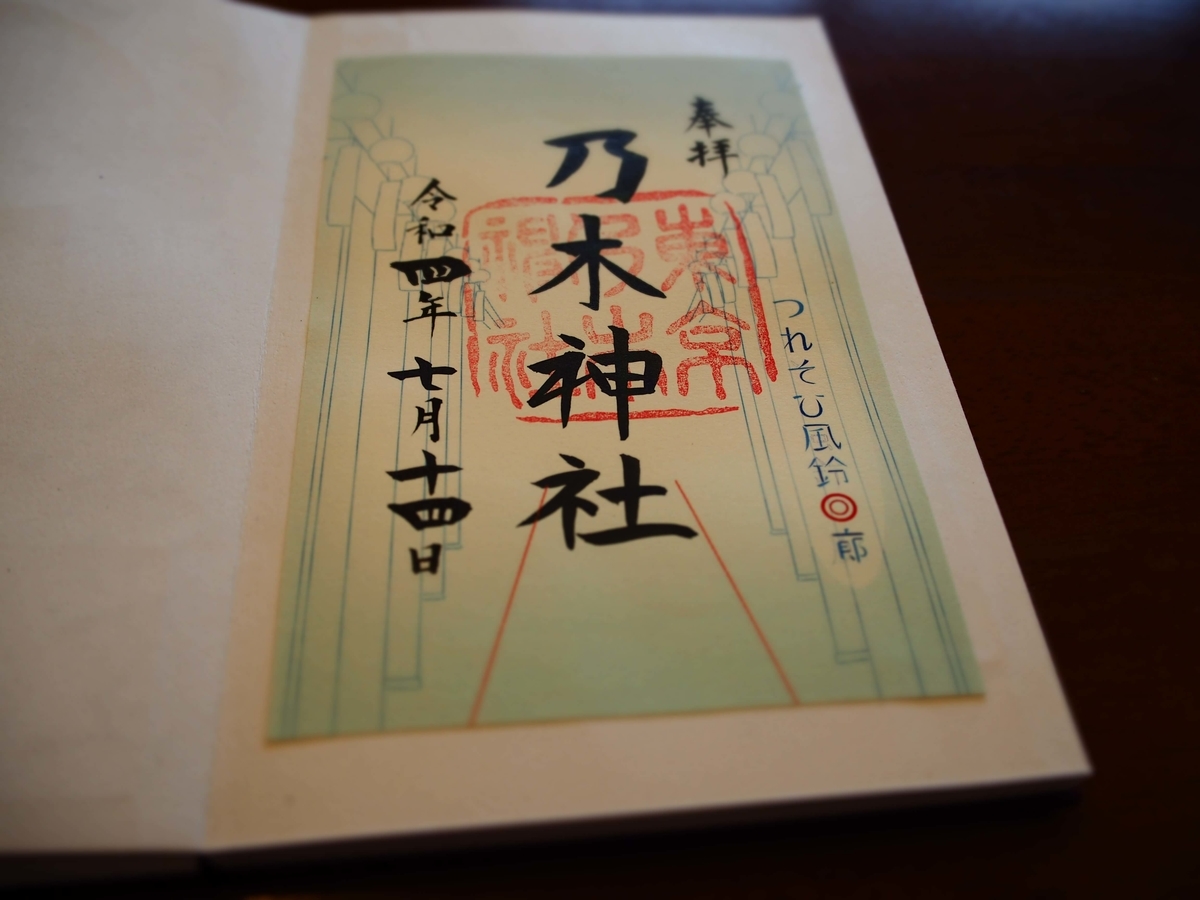 奉拝
つれそひ風鈴◎廊
乃木神社
東京
乃木
神社
令和四年 七月十四日